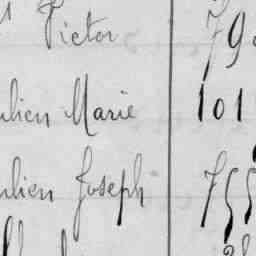 Victor 79
ulien Marie 101
ulien Joseph 755